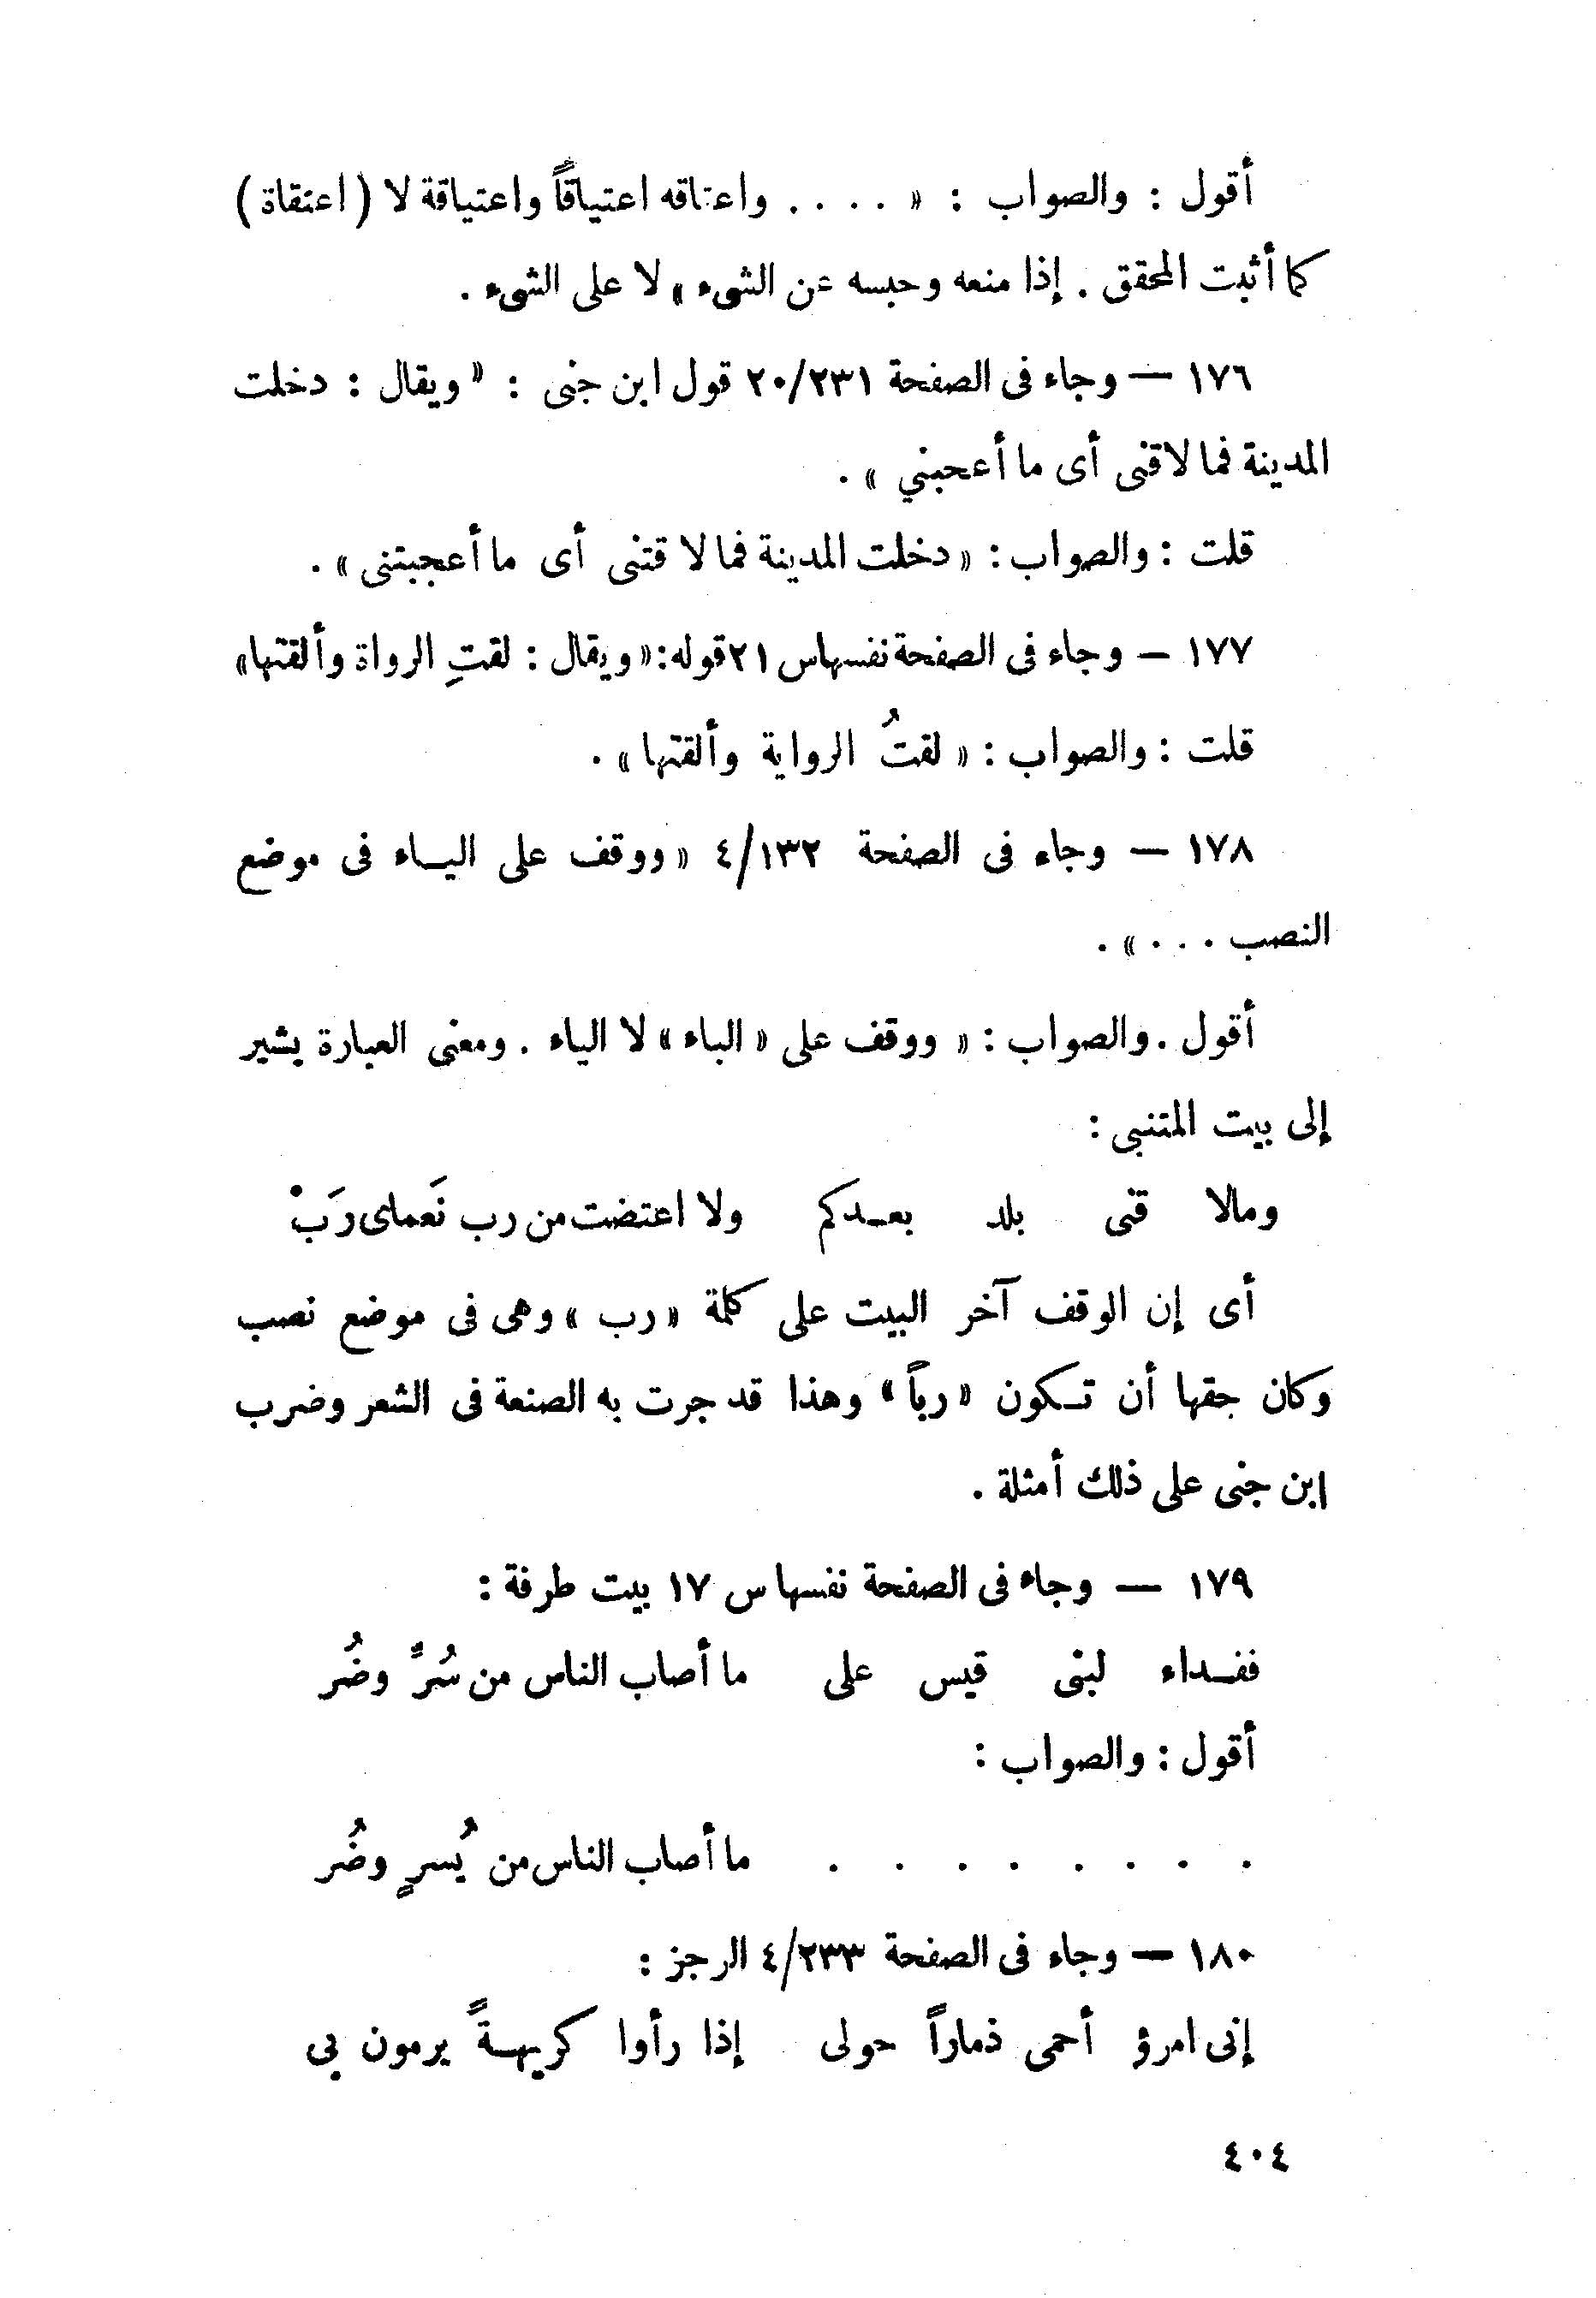 أقول : والصواب : « . . . . واعتاقه اعتياقاً واعتياقة لا ( اعتقاة )
كما أثبت المحقق . إذا منعه وحبسه عن الشىء » لا على الشىء .
١٧٦ — وجاء فى الصفحة ٢٠/٢٣١ قول ابن جنى : « ويقال : دخلت
المدينة فما لاقنى أى ما أعحبني » .
قلت : والصواب : « دخلت المدينة فما لا قتنى أى ما أعجبتنى » .
١٧٧ — وجاء فى الصفحة نفسها س ٢١ قوله : « ويقال : لقتِ الرواة وألقتها »
قلت : والصواب : « لقتُ الرواية وألقتها » .
١٧٨ — وجاء فى الصفحة ٤/١٣٢ « ووقف على اليـاء فى موضع
النصب . . . » .
أقول . والصواب : « ووقف على « الباء » لا الياء . ومعنى العبارة يشير
إلى بيت المتنبى :
ومالا قنى بلد بعـدكم ولا اعتضت من رب نَعماى رَبْ
أى إن الوقف آخر البيت على كلمة « رب » وهى فى موضع نصب
وكان جقها أن تـكون « رباً » وهذا قد جرت به الصنعة فى الشعر وضرب
ابن جنى على ذلك أمثلة .
١٧٩ — وجاء فى الصفحة نفسها س ١٧ بيت طرفة :
ففـداء لبنى قيس على ما أصاب الناس من سُرٍّ وضُر
أقول : والصواب :
. . . . . . . . ما أصاب الناس من يُسرٍ وضُر
١٨٠ — وجاء فى الصفحة ٤/٢٣٣ الرجز :
إنى امرؤ أحمى ذماراً حولى إذا رأوا كريهـةً يرمون بى
٤٠٤